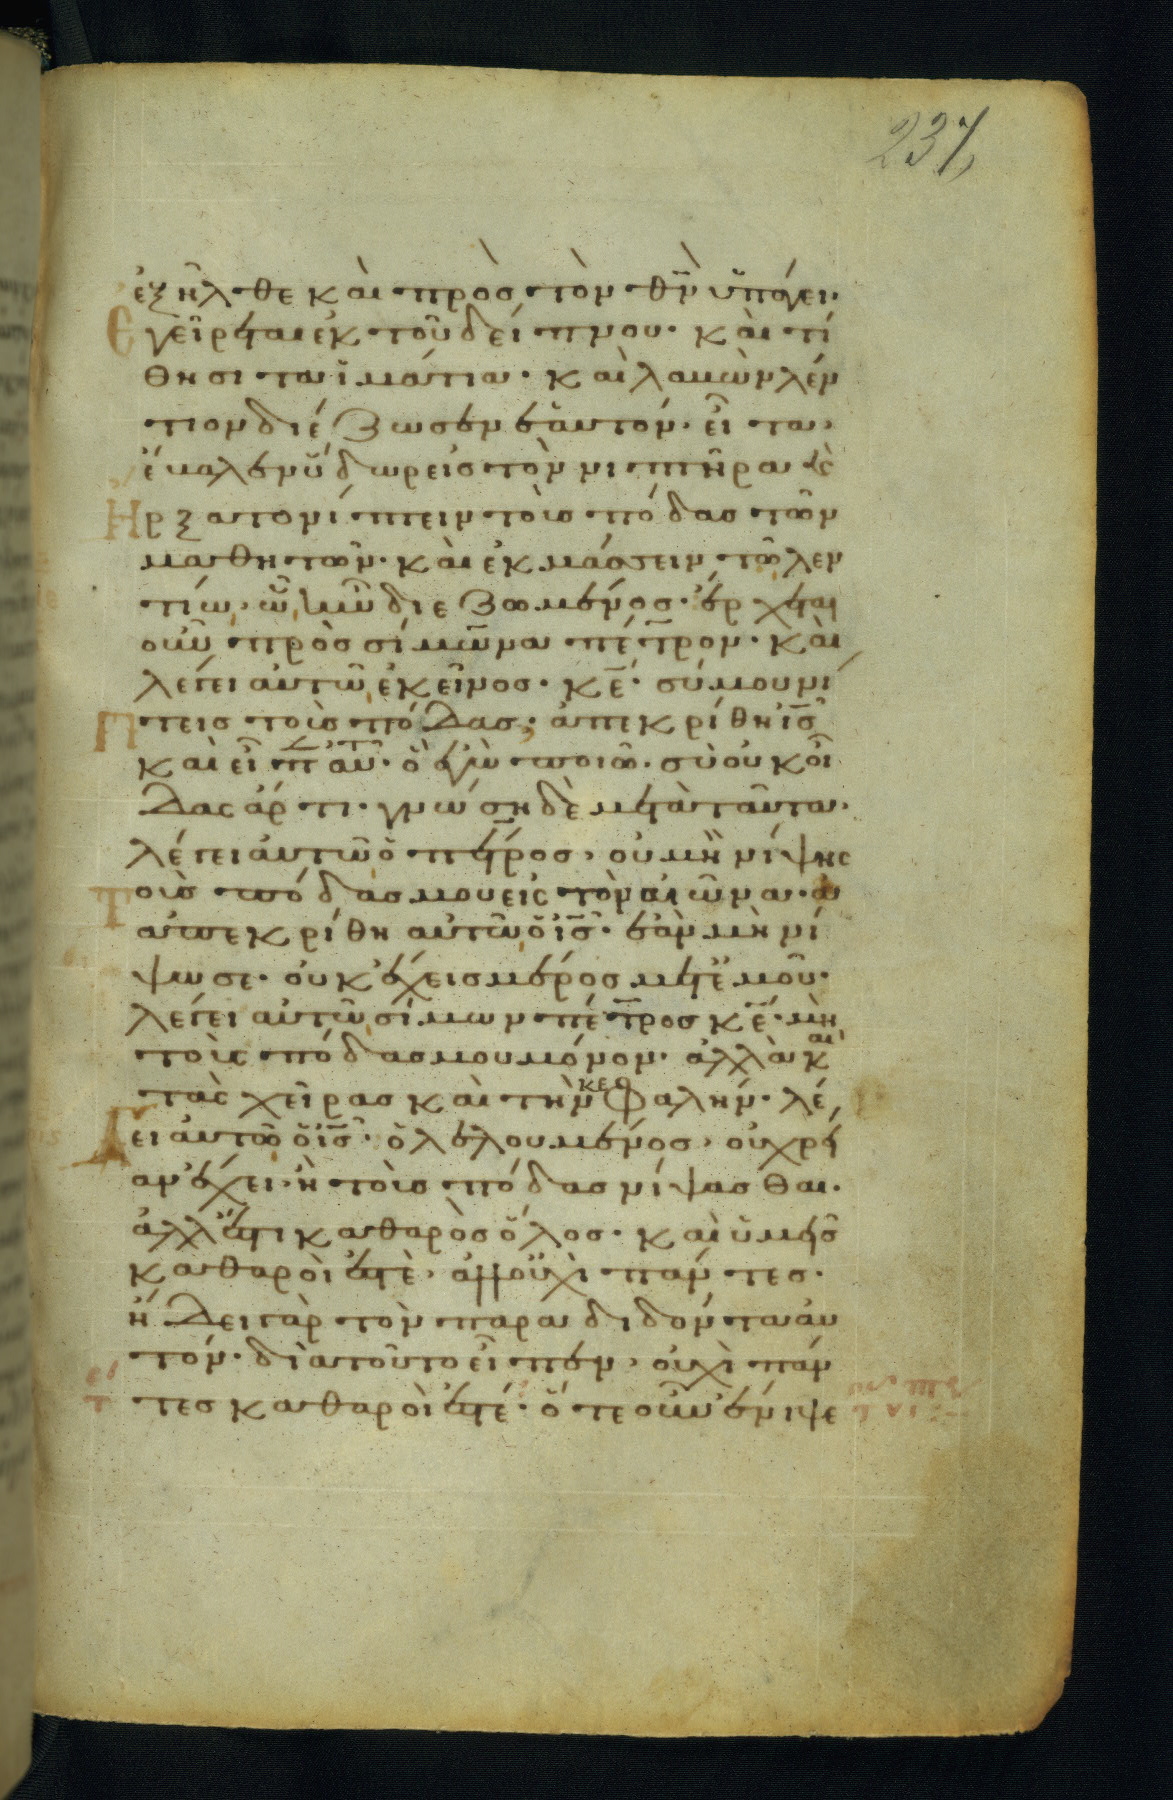 237
ἐξῆλθε καὶ πρὸς τὸν θ̅ν̅ ὑπάγει·
Ἐγείρεται ἐκ τοῦ δείπνου· καὶ τί
θησι τὰ ἱμάτια· καὶ λαβὼν λέν
τιον διέζωσεν ἑαυτόν· εἶτα
ἔβαλεν ὕδωρ εἰς τὸν νιπτῆρα κ̀
Ἤρξατο νίπτειν τοὺς πόδας τῶν
μαθητῶν· καὶ ἐκμάσσειν τῶ λεν
τίω, ὧ ἦν διεζωσμένος· ἔρχεται
οὖν πρὸς σίμωνα πέτρον· καὶ
λέγει αὐτῶ ἐκεῖνος· κ̅ε̅· σύ μου νί
πτεις τοὺς πόδας; ἀπεκρίθη ι̅ς̅
καὶ εἶπεν αὐτῶ· ὃ ἐγὼ ποιῶ· σὺ οὐκ οἶ
δας ἄρτι· γνώση δὲ μετὰ ταῦτα·
λέγει αὐτῶ ὁ πέτρος, οὐ μὴ νίψης
τοὺς πόδας μου εἰς τὸν αἰῶνα·
ἀπεκρίθη αὐτῶ ὁ ι̅ς̅· ἐὰν μὴ νί
ψω σε· οὐκ ἔχεις μέρος μετ' ἐμοῦ·
λέγει αὐτῶ σίμων πέτρος κ̅ε̅· μὴ
τοὺς πόδας μου μόνον· ἀλλὰ καὶ
τὰς χεῖρας καὶ τὴν κεφαλήν· λέ
γει αὐτῶ ὁ ι̅ς̅· ὁ λελουμένος, οὐ χρεί
αν ἔχει· ἢ τοὺς πόδας νίψασθαι·
ἀλλ' ἔστι καθαρὸς ὅλος· καὶ ὑμεῖς
καθαροί ἐστε, ἀλλ' οὐχὶ πάντες·
ἤδει γὰρ τὸν παραδιδόντα αὐ
τόν· διὰ τοῦτο εἶπεν, οὐχὶ πάν
τες καθαροί ἐστέ· ὅτε οὖν ἔνιψε